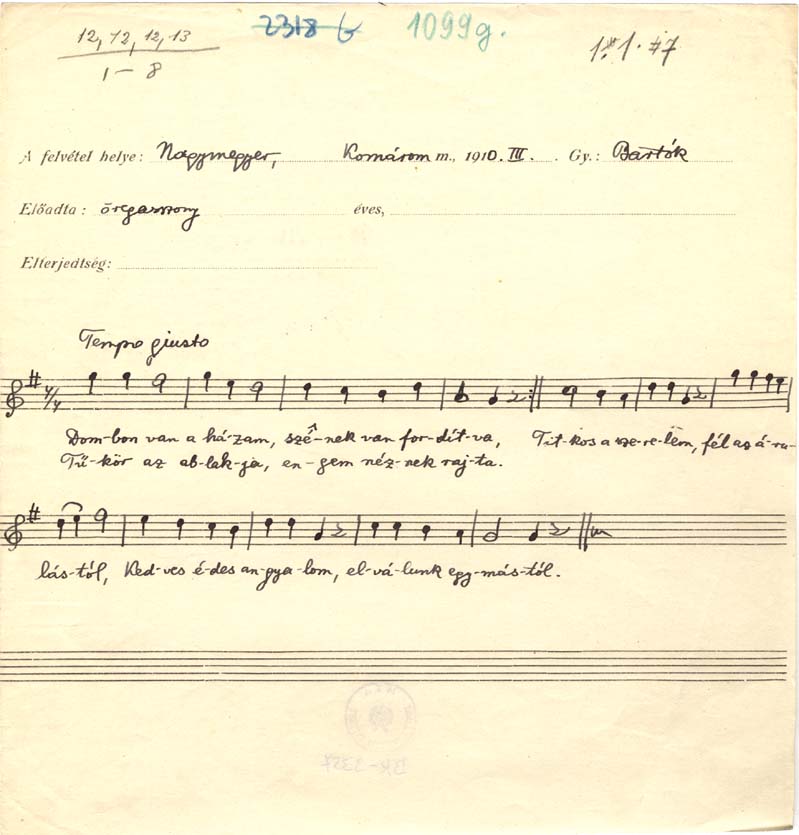 12, 12, 12, 13
1 — 8
2318 b
1099g.
1. 1. #7
A felvétel helye: Nagymegyer, Komárom m., 1910. III. Gy.: Bartók
Előadta: öregasszony éves,
Elterjedtség:
Tempo giusto
4/4
Dom-bon van a há-zam, szé-nek van for-dít-va, Tit-kos a sze-re-lëm, fél az á-ru-
Tü-kör az ab-lak-ja, en-gem néz-nek raj-ta.
lás-tól, Ked-ves é-des an-gya-lom, el-vá-lunk egy-más-tól.